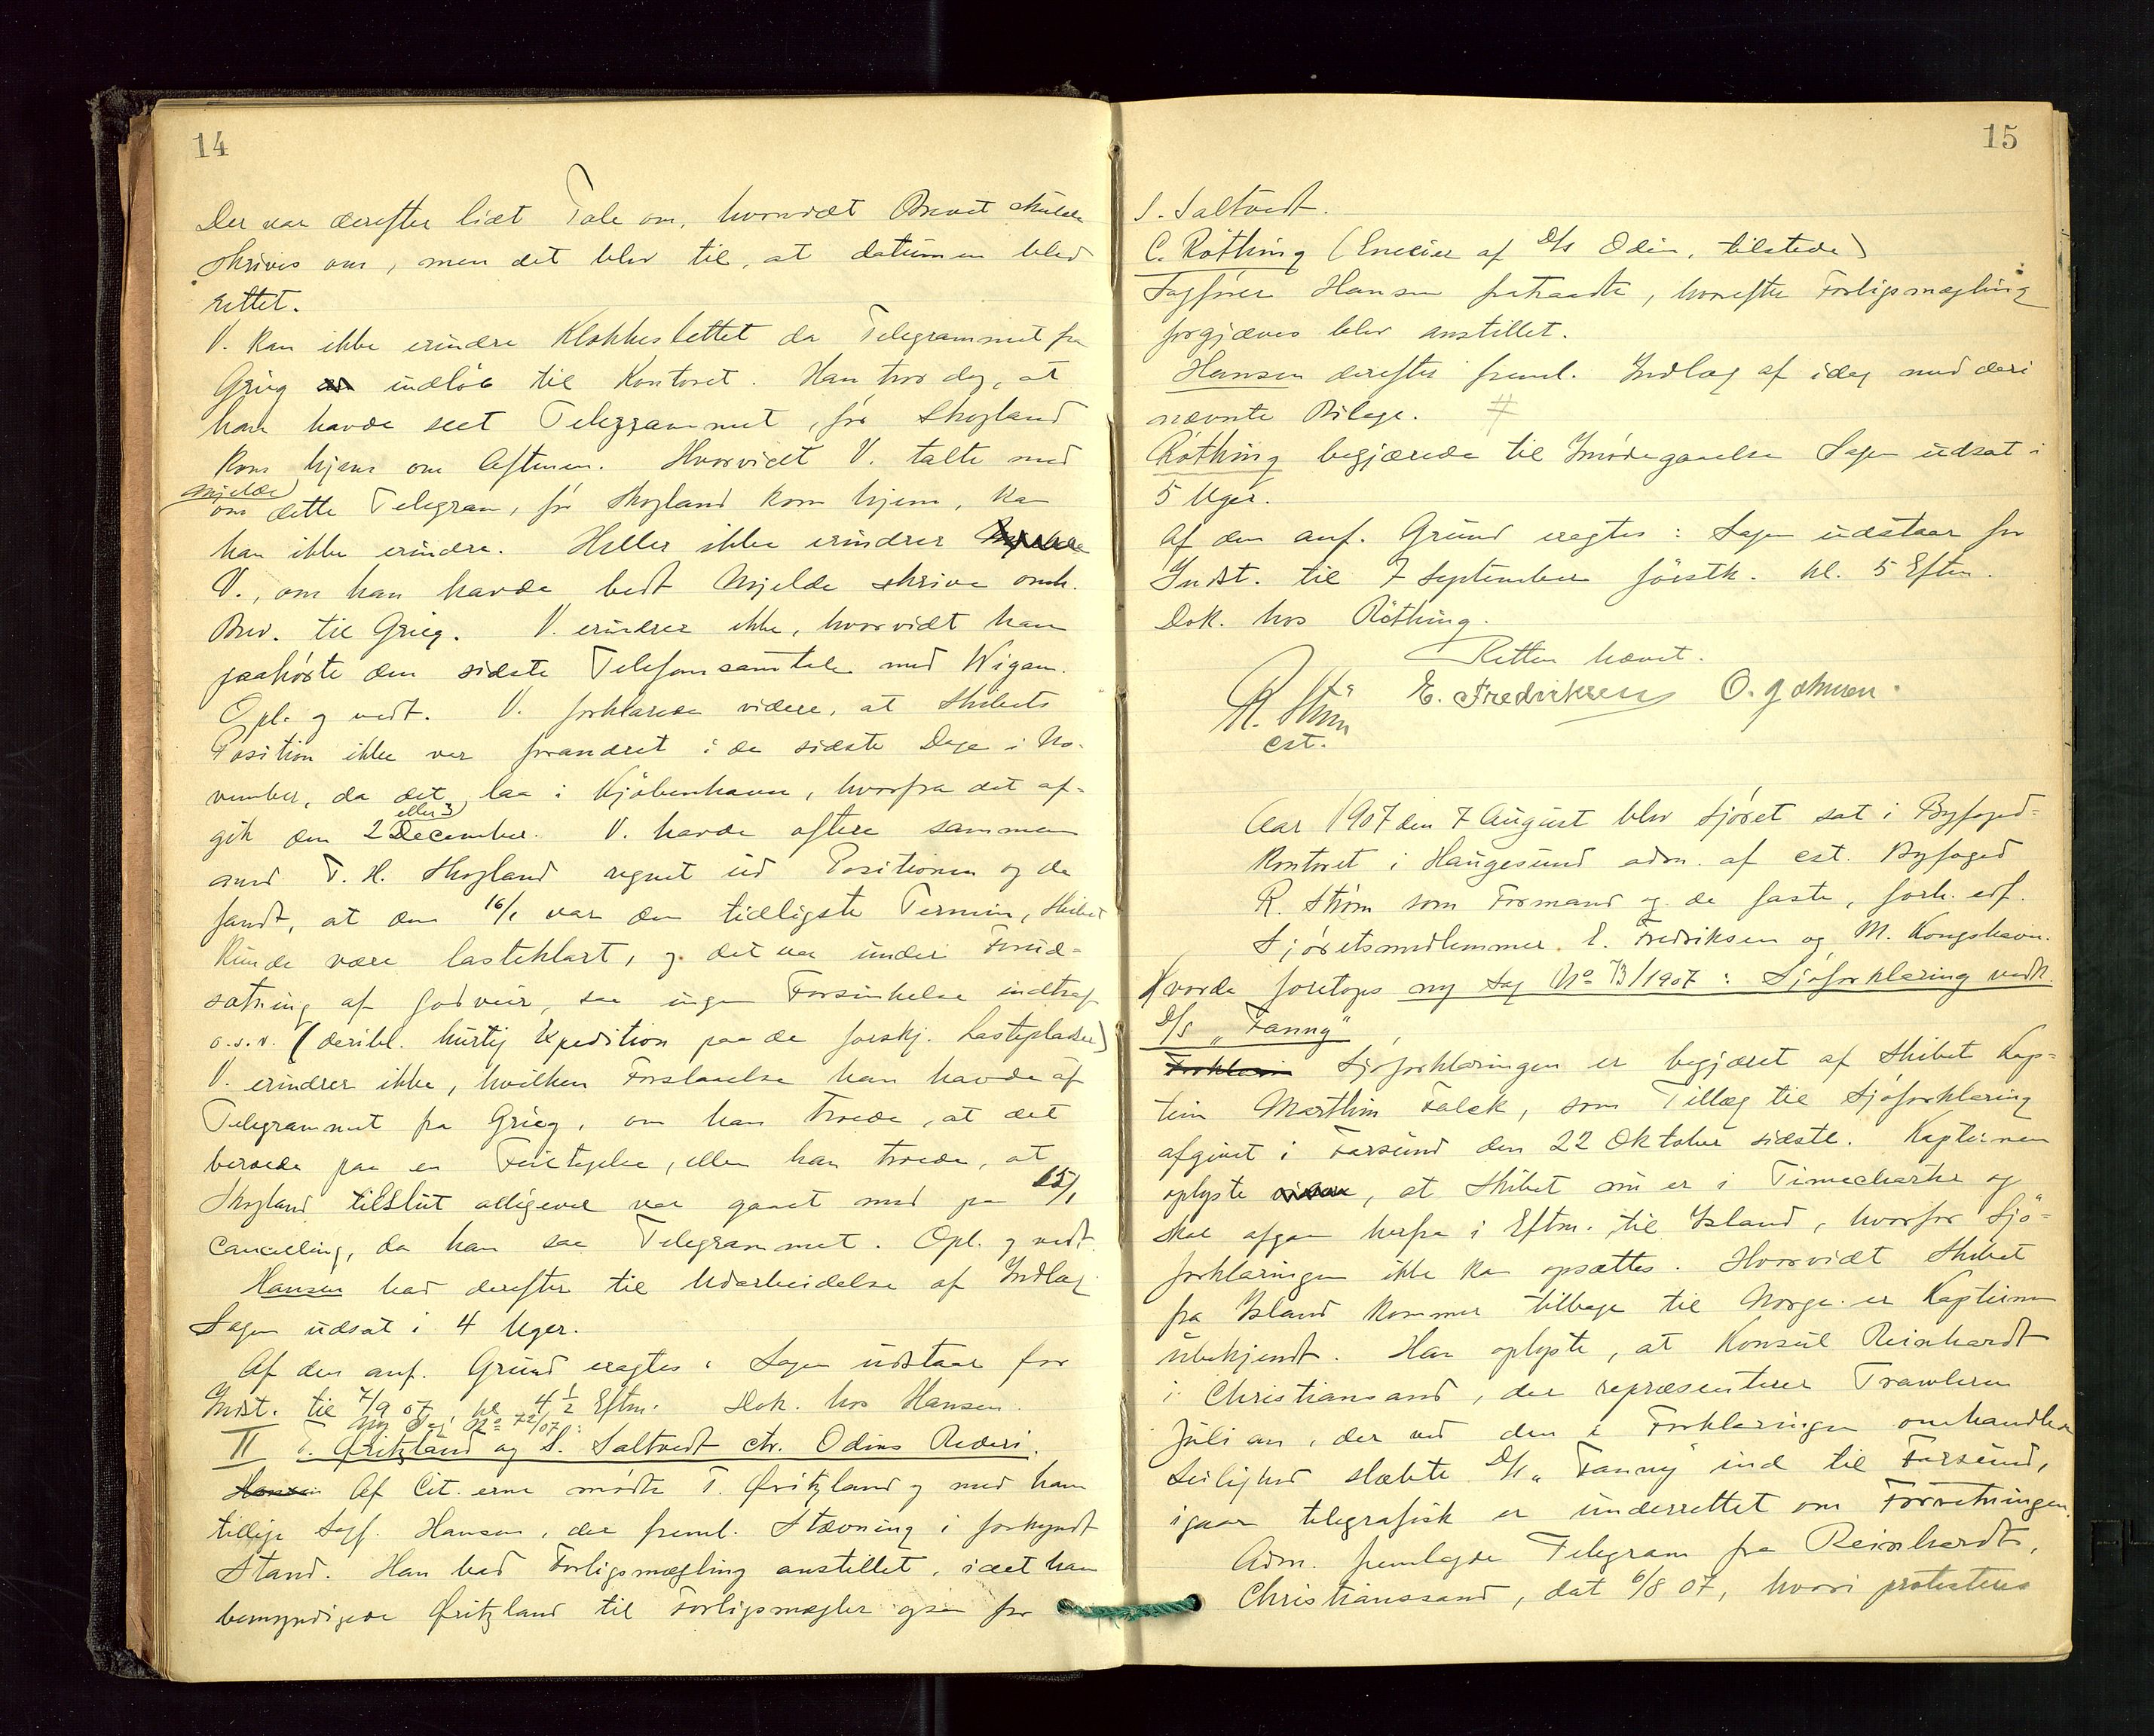 14
Der var derefter lidt Tale om, hvorvidt Brevet skulde
skrives om, men det blev til, at datumen blev
rettet.
V. kan ikke erindre Klokkeslettet da Telegrammet fra
Grieg indløb til Kontoret. Han tror dog, at
han havde seet Telegrammet, før Skogland
kom hjem om Aftenen. Hvorvidt V. talte med
Mjelde
om dette Telegram, før Skogland kom hjem, kan
han ikke erindre. Heller ikke erindrer
V., om han havde bedt Mjelde skrive omh.
Brev. til Grieg. V. erindrer ikke, hvorvidt han
paahørte den sidste Telefonsamtale med Wigam.
Opl. og vedt. V. forklarede videre, at Skibets
Position ikke var forandret i de sidste Dage i No-
vember, da det laa i Kjöbenhavn, hvorfra det af-
eller 3
gik den 2 December. V. havde oftere sammen
med T. H. Skogland regnet ud Positionen og de
fandt, at den 16/1 var den tidligste Termin, Skibet
kunde være lasteklart, og det var under Forud-
sætning af godveir, saa ingen Forsinkelse indtraf
o.s.v. (deribl. hurtig Expedition paa de forskj. Lastepladser)
V. erindrer ikke, hvilken Forstaaelse han havde af
Telegrammet fra Grieg, om han troede, at det
beroede paa en Feiltagelse, eller han troede, at
Skogland tilslut alligevel var gaaet med paa 15/1
Cancelling, da han saa Telegrammet. Opl. og vedt.
Hansen bad derefter til Udarbeidelse af Indlæg
Sagen udsat i 4 Uger.
Af den anf. Grund eragtes: Sagen udstaar for
Indst. til 7/9 07 kl 4½ Eftm. Dok. hos Hansen.
Ny Sag No 72/07:
II T. Øritzland og S. Saltvedt ctr. Odins Rederi.
Af Cit.erne mødte T. Øritzland og med ham
tillige Sagf. Hansen, der freml. Stævning i forkyndt
Stand. Han bad Forligsmægling anstillet, idet han
bemyndigede Øritzland til Forligsmægler ogsaa for
15
S. Saltvedt.
C. Röthing (Eneeier af D/S Odin, tilstede)
Sagfører Hansen fratraadte, hvorefter Forligsmægling
forgjæves blev anstillet.
Hansen derefter freml. Indlæg af idag med deri
nævnte Bilage. #
Röthing begjærede til Imødegaaelse Sagen udsat i
5 Uger.
Af den anf. Grund eragtes: Sagen udstaar for
Indst. til 7 September førstk. kl. 5 Eftm.
Dok. hos Röthing.
Retten hævet.
R. Strøm E. Fredriksen O. Johnsen.
cst.
Aar 1907 den 7 August blev Sjøret sat i Byfoged-
kontoret i Haugesund adm. af cst. Byfoged
R. Strøm som Formand og de faste, forh. edf.
Sjøretsmedlemmer. E. Fredriksen og M. Kongshavn.
Hvorda foretoges ny Sag No 73/1907: Sjøforklaring vedk.
D/S "Fanny"
Sjøforklaringen er begjæret af Skibets Kap-
tein Marthin Falck, som Tillæg til Sjøforklaring
afgivet i Farsund den 22 Oktober sidstl. Kapteinen
oplyste, at Skibet nu er i Timecharter og
skal afgaa herfra i Eftm. til Island, hvorfor Sjö-
forklaringen ikke kan opsættes. Hvorvidt Skibet
fra Island kommer tilbage til Norge er Kapteinen
ubekjendt. Han oplyste, at Konsul Reinhardt
i Christiansand, der repræsenterer Trawleren
Julian, der ved den i Forklaringen omhandlede
Leilighed slæbte D/S "Fanny" ind til Farsund,
igaar telegrafisk er underrettet om Forretningen.
Adm. fremlagde Telegram fra Reinhardt,
Christianssand, dat 6/8 07, hvori protesteres